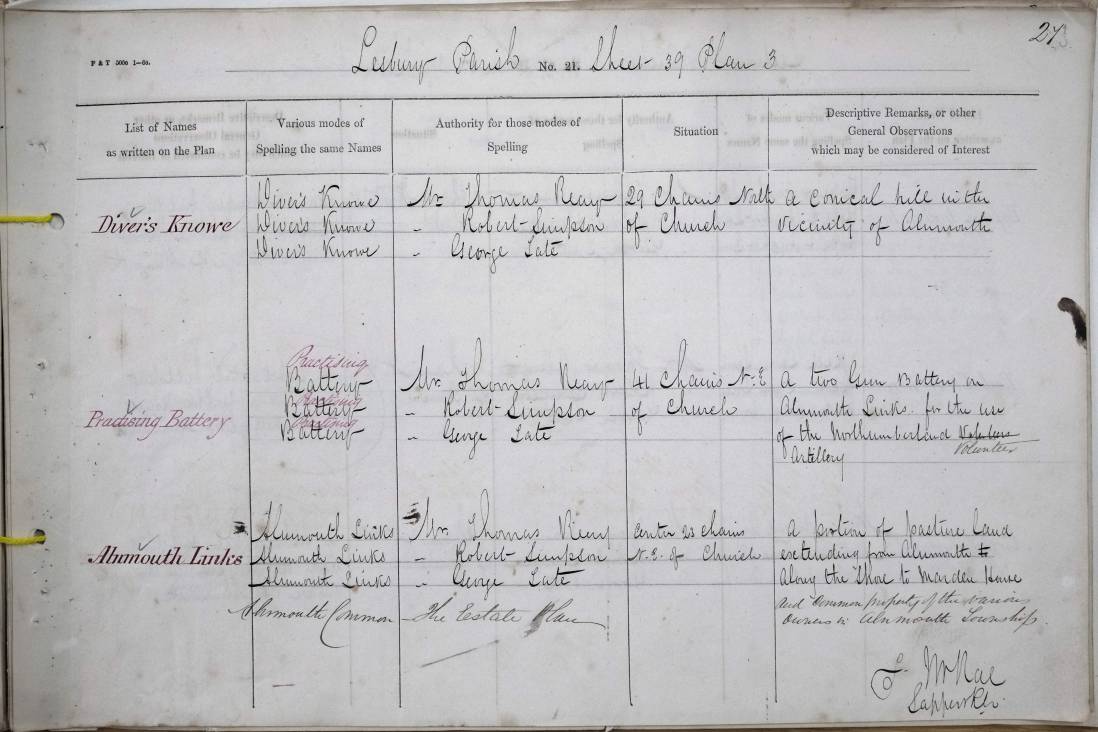 27
P & T 5000 1-60.
Lesbury Parish No. 21. Sheet 39 Plan 3
List of Names
as written on the Plan
Various modes of
Spelling the same Names
Authority for those modes of
Spelling
Situation
Descriptive Remarks, or other
General Observations
which may be considered of Interest
Diver's Knowe
Diver's Knowe
Diver's Knowe
Diver's Knowe
Mr Thomas Reay
" Robert Simpson
" George Tate
29 Chains North
of Church
A conical hill in the
vicinity of Alnmouth
Practising Battery
Practising
Battery
Practising
Battery
Practising
Battery
Mr. Thomas Reay
" Robert Simpson
" George Tate
41 Chains N.E
of Church
A two Gun Battery on
Alnmouth Links for the use
of the Northumberland
Volunteer
Artillery
Alnmouth Links
Alnmouth Links
Alnmouth Links
Alnmouth Links
Alnmouth Common
Mr. Thomas Reay
" Robert Simpson
" George Tate
The Estate Plan
Center 23 chains
N.E. of Church
A portion of pasture land
extending from Alnmouth to
along the Shore to Marden House
and Common property of the various
owners in Alnmouth Township.
McRae
Sapper R.E.